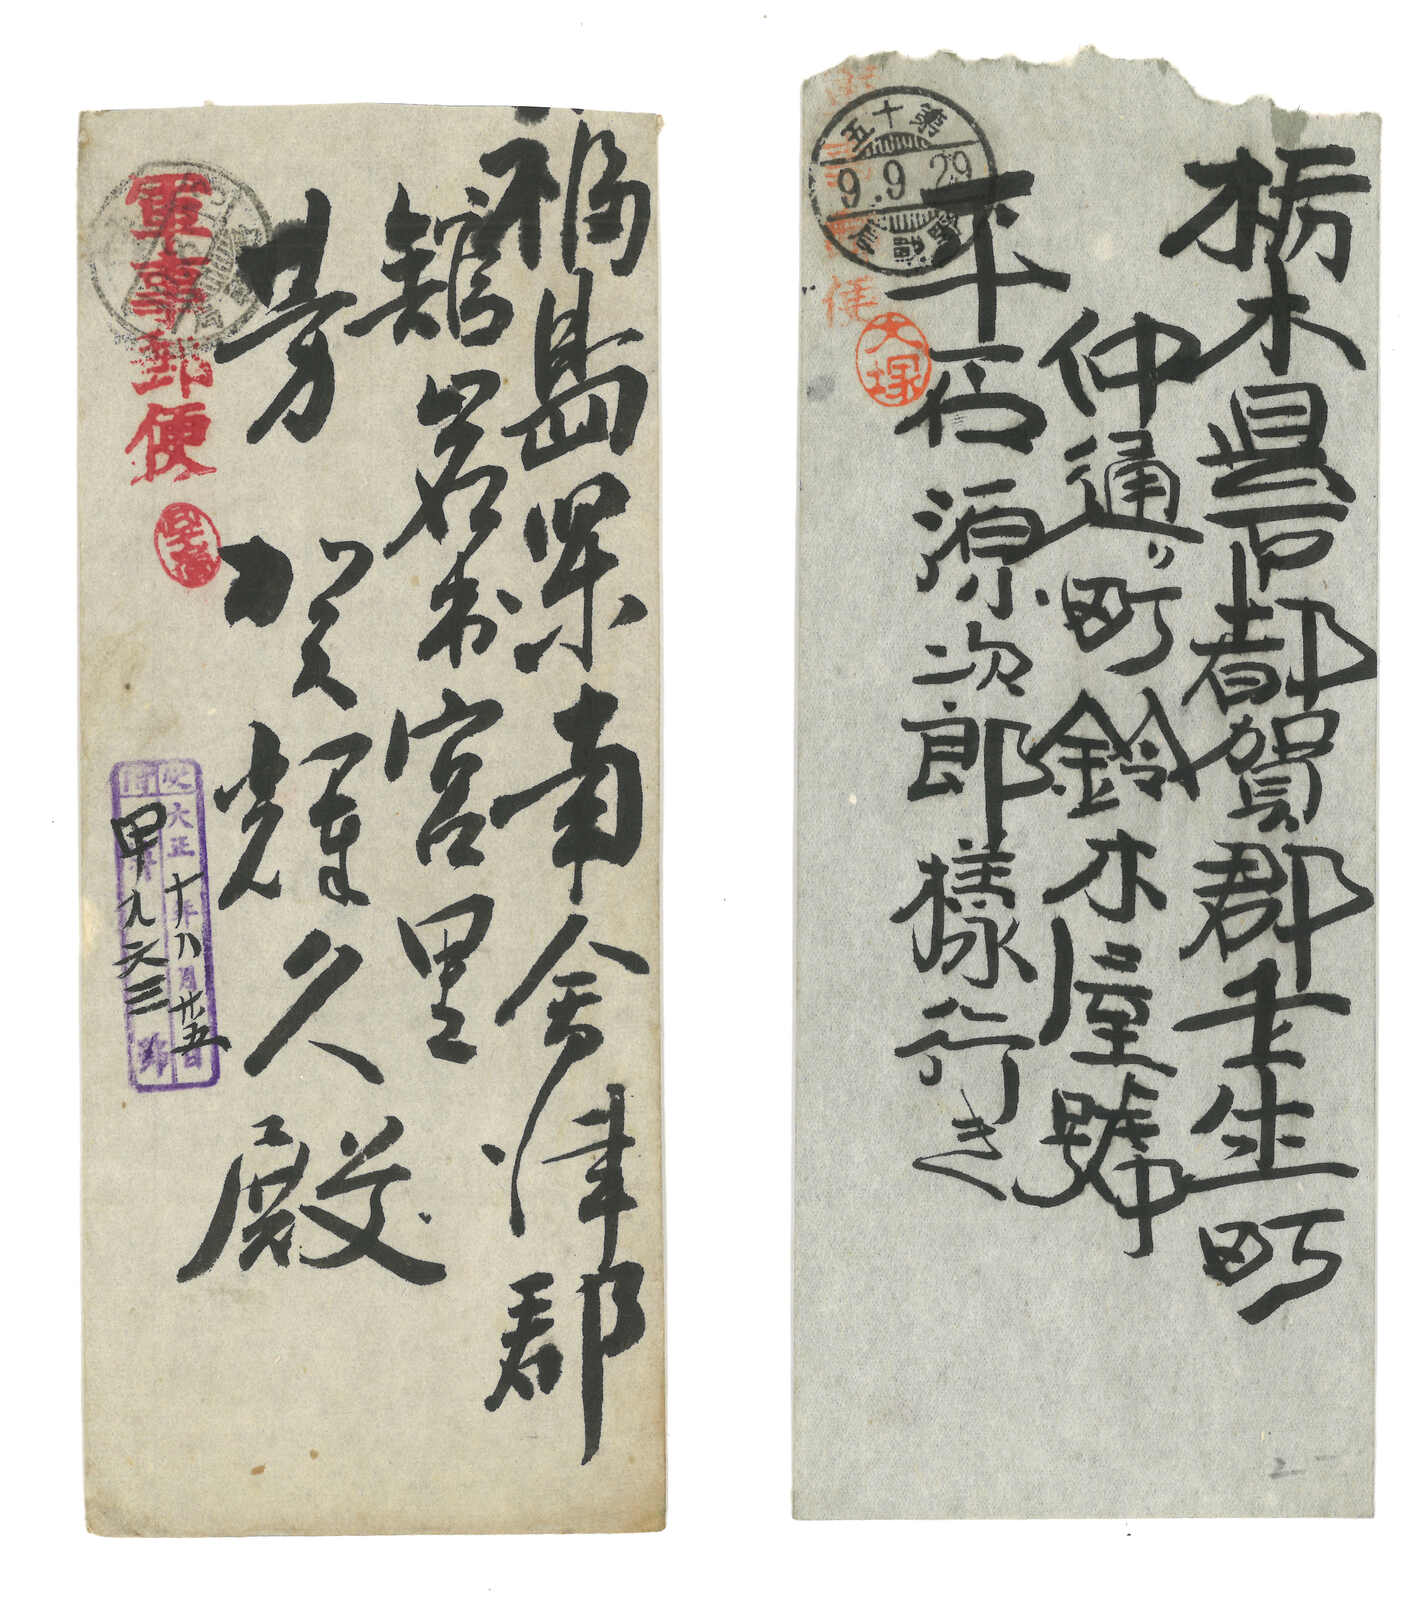 福島県南会津郡
舘岩村宮里
芳賀耀久殿
軍事郵便
大正十年八月廿五日
甲九六三
号
栃木県下都賀郡壬生町
仲通リ町鈴木屋號
平石源次郎様行き
第十五
9.9.29
大塚